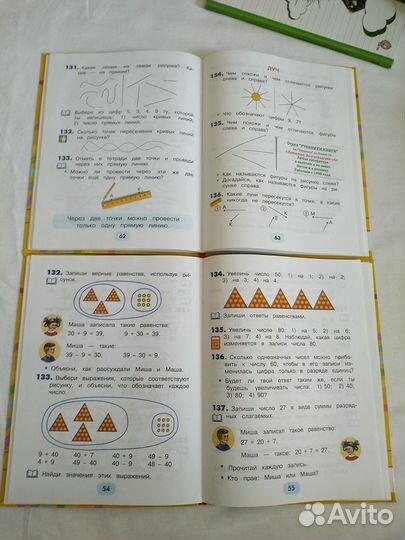 131. Какие линии на левом рисунке? Ка-
кие — на правом?
Выбери из цифр 5, 3, 4, 9 ту, которой
ты запишешь: 1) число кривых линий;
2) число прямых линий.
132. Сколько точек пересечения кривых линий
на рисунке?
133. Отметь в тетради две точки и проведи
через них прямую линию.
Можно ли провести через эти же две
точки ещё одну прямую линию?
Через две точки можно провести
только одну прямую линию.
62
ЛУЧ
134. Чем похожи и чем отличаются рисунки
слева и справа?
• что обозначают цифры 9, 7?
135. Чем похожи и чем отличаются фигуры
слева и справа?
• Как называются фигуры на рисунке слева?
• Догадайся, как называются фигуры на ри-
сунке справа.
136. Какие лучи пересекутся, а какие
никогда не пересекутся?
1 А
К
2
Е
3 М
63
132. Запиши верные равенства, используя ри-
сунок.
Маша записала такие равенства:
30 + 9 = 39, 9 + 30 = 39.
Миша — такие:
39 – 9 = 30, 39 – 30 = 9.
• Объясни, как рассуждали Миша и Маша.
133. Выбери выражения, которые соответствуют
рисунку, и объясни, что обозначает каждое
число.
9 + 40 40 + 7 40 + 9 49 – 9
4 + 9 49 – 40 40 – 9 48 – 40
Найди значения этих выражений.
54
134. Увеличь число 50: 1) на 1; 2) на 2;
3) на 3; 4) на 4.
Запиши ответы равенствами.
135. Увеличь число 80: 1) на 5; 2) на 6;
3) на 7; 4) на 8. Наблюдай, какая цифра
изменяется в записи числа 80.
136. Сколько однозначных чисел можно приба-
вить к числу 60, чтобы в его записи из-
менилась цифра только в разряде единиц?
• Будет ли твой ответ таким же, если ты
будешь увеличивать числа: 1) 50; 2) 40;
3) 80; 4) 90?
137. Запиши число 27 в виде суммы разряд-
ных слагаемых.
Миша записал такое равенство:
27 = 20 + 7.
Маша — такое: 20 + 7 = 27.
• Прочитай каждую запись.
• Кто прав: Миша или Маша?
55
Avito